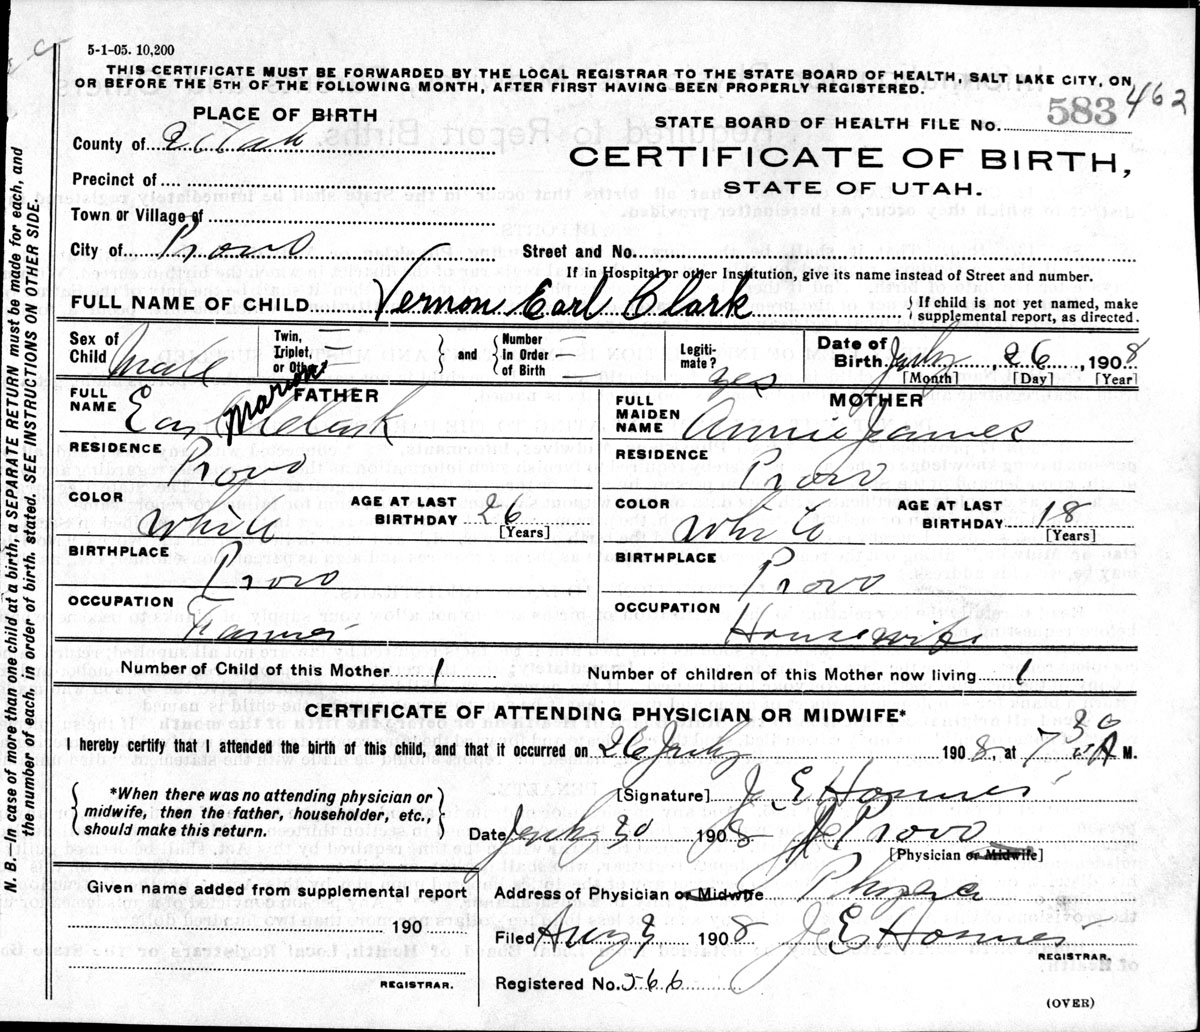 5-1-05. 10,200
THIS CERTIFICATE MUST BE FORWARDED BY THE LOCAL REGISTRAR TO THE STATE BOARD OF HEALTH, SALT LAKE CITY, ON
OR BEFORE THE 5TH OF THE FOLLOWING MONTH, AFTER FIRST HAVING BEEN PROPERLY REGISTERED.
PLACE OF BIRTH
STATE BOARD OF HEALTH FILE No. 583 462
County of Utah
CERTIFICATE OF BIRTH,
STATE OF UTAH.
Precinct of
Town or Village of
City of Provo Street and No.
If in Hospital or other Institution, give its name instead of Street and number.
FULL NAME OF CHILD Vernon Earl Clark { If child is not yet named, make supplemental report, as directed.
Sex of Child Male Twin, Triplet, or Other } and { Number In Order of Birth Legitimate? yes Date of Birth July, 26, 1908
[Month] [Day] [Year]
FATHER
FULL NAME Earl Marion Clark
MOTHER
FULL MAIDEN NAME Annie James
RESIDENCE Provo
RESIDENCE Provo
COLOR White AGE AT LAST BIRTHDAY 26 [Years]
COLOR White AGE AT LAST BIRTHDAY 18 [Years]
BIRTHPLACE Provo
BIRTHPLACE Provo
OCCUPATION Farmer
OCCUPATION Housewife
Number of Child of this Mother 1 Number of children of this Mother now living 1
CERTIFICATE OF ATTENDING PHYSICIAN OR MIDWIFE*
I hereby certify that I attended the birth of this child, and that it occurred on 26 July 1908, at 7 30 A M.
{ *When there was no attending physician or midwife, then the father, householder, etc., should make this return. }
[Signature] J E
Date July 30 1908 Provo
[Physician or Midwife]
Given name added from supplemental report
190
REGISTRAR.
Address of Physician or Midwife
Filed Aug 3 1908 J E
REGISTRAR.
Registered No. 566
(OVER)
N. B.—In case of more than one child at a birth, a SEPARATE RETURN must be made for each, and
the number of each, in order of birth, stated. SEE INSTRUCTIONS ON OTHER SIDE.